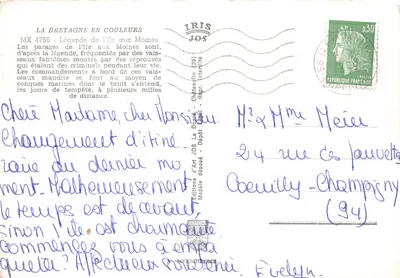 LA BRETAGNE EN COULEURS
MX 4756 - Légende de l'Ile aux Moines
Les parages de l'Ile aux Moines sont,
d'après la légende, fréquentés par des vais-
seaux fantômes montés par des réprouvés
qui étaient des criminels pendant leur vie.
Les commandements à bord de ces vais-
seaux maudits se font au moyen de
conques marines dont le bruit s'entend,
les jours de tempête, à plusieurs milles
de distance.
IRIS
JOS
Chère Madame, cher Monsieur
Changement d'itiné-
raire au dernier mo-
ment. Malheureusement
le temps est décevant,
sinon l'île est charmante
Commencez vous à
Affectueux souvenir.
Evelyn.
Editions d'Art JOS Le Doaré - Châteaulin (29)
Modèle déposé - Dépôt légal - Repr. interdite
0,30
REPUBLIQUE FRANÇAISE
Mr & Mme
24 rue des
Coeuilly-Champigny
(94)